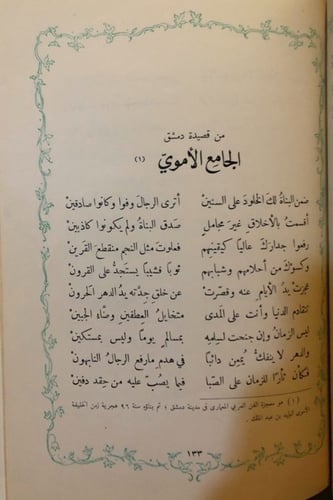 من قصيدة دمشق
الجامع الأموي (١)
ضمن البناةُ لك الخلودَ على السنينْ أترى الرجال وفوا وكانوا صادقينْ
أقسمتُ بالأخلاق غيرَ مجاملٍ صدق البناةُ ولم يكونوا كاذبينْ
رفعوا جدارك عاليًا كيقينهم فعلوتَ مثل النجم منقطعَ القرينْ
وكسوْك من أحلامهم وشبابهم ثوبًا قشيبًا يستجدُّ على القرونْ
عجزتْ يدُ الأيام عنه وقصّرتْ عن خلق جِدَّته يدُ الدهر الحرونْ
تتقادم الدنيا وأنت على المدى متخايل العِطفين وضاء الجبينْ
ليس الزمانُ وإن جنحتَ لسِلمه بمسالمٍ يومًا وليس بمستكينْ
والدهر لا ينفكُّ يُمعن دائبًا في هدم مارفع الرجالُ النابهونْ
فكأن ثأرًا للزمان على الصِّبا فيما يصُبّ عليه من حقد دفينْ
(١) هو معجزة الفن العربي المعماري في مدينة دمشق ؛ تم بناؤه سنة ٩٦ هجرية زمن الخليفة
الأموي الوليد بن عبد الملك .
١٣٣